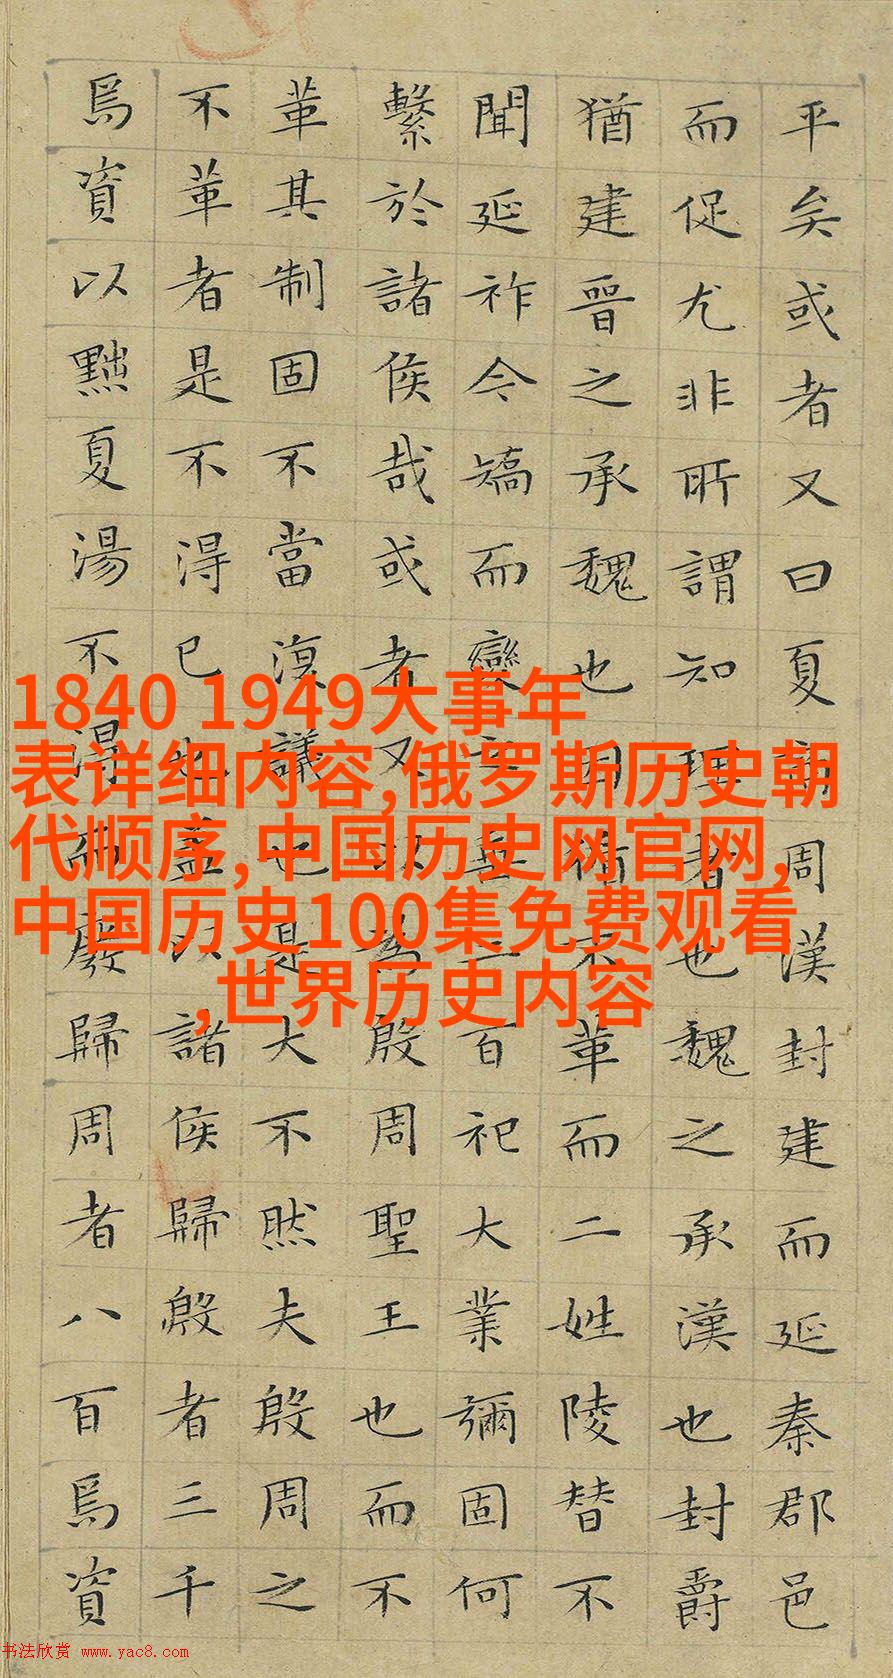 平矣或者又曰夏商周漢封建而延秦郡邑
而促尤非所謂知理者也魏之承漢也封爵
猶建晉之承魏也因循不革而二姓陵替不
聞延祚今矯而變之垂二百祀大業彌固何
繫於諸侯哉或者又以為殷周聖王也而不
革其制固不當復議也是大不然夫殷周之
不革者是不得已也蓋以諸侯歸殷者三千
焉資以黜夏湯不得而廢歸周者八百焉資
1840 1949大事年
表详细内容,俄罗斯历史朝
代顺序,中国历史网官网,
中国历史100集免费观看
,世界历史内容
书法欣赏 www.yac8.com